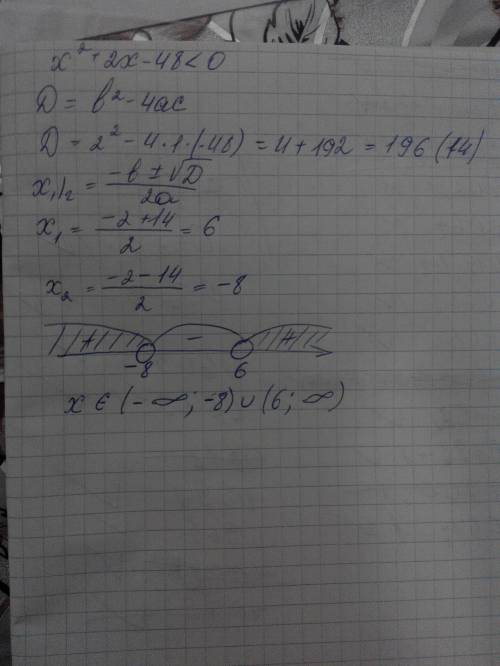 x² + 2x - 48 < 0
D = b² - 4ac
D = 2² - 4·1·(-48) = 4 + 192 = 196 (14)
x₁/₂ = (-b ± √D)/2a
x₁ = (-2 + 14)/2 = 6
x₂ = (-2 - 14)/2 = -8
+ - +
-8 6
x ∈ (-∞; -8) ∪ (6; ∞)